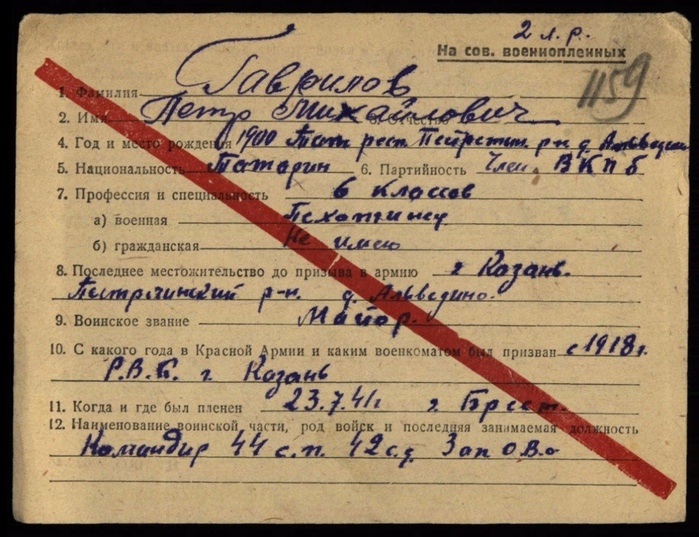 2 л.р.
На сов. военнопленных
1159
1. Фамилия Гаврилов
2. Имя Петр Михайлович 3. Отчество
4. Год и место рождения 1900 Тат. респ. Пестречин. р-н д. Альведино
5. Национальность Татарин 6. Партийность Член ВКПб
7. Профессия и специальность 6 классов
а) военная Пехотинец
б) гражданская Не имею
8. Последнее местожительство до призыва в армию г Казань.
Пестречинский р-н. д. Альведино.
9. Воинское звание Майор.
10. С какого года в Красной Армии и каким военкоматом был призван с 1918г.
Р.В.К. г. Казань
11. Когда и где был пленен 23.7.41г г. Брест.
12. Наименование воинской части, род войск и последняя занимаемая должность
Командир 44 с.п. 42 с.д. Зап О.В.о